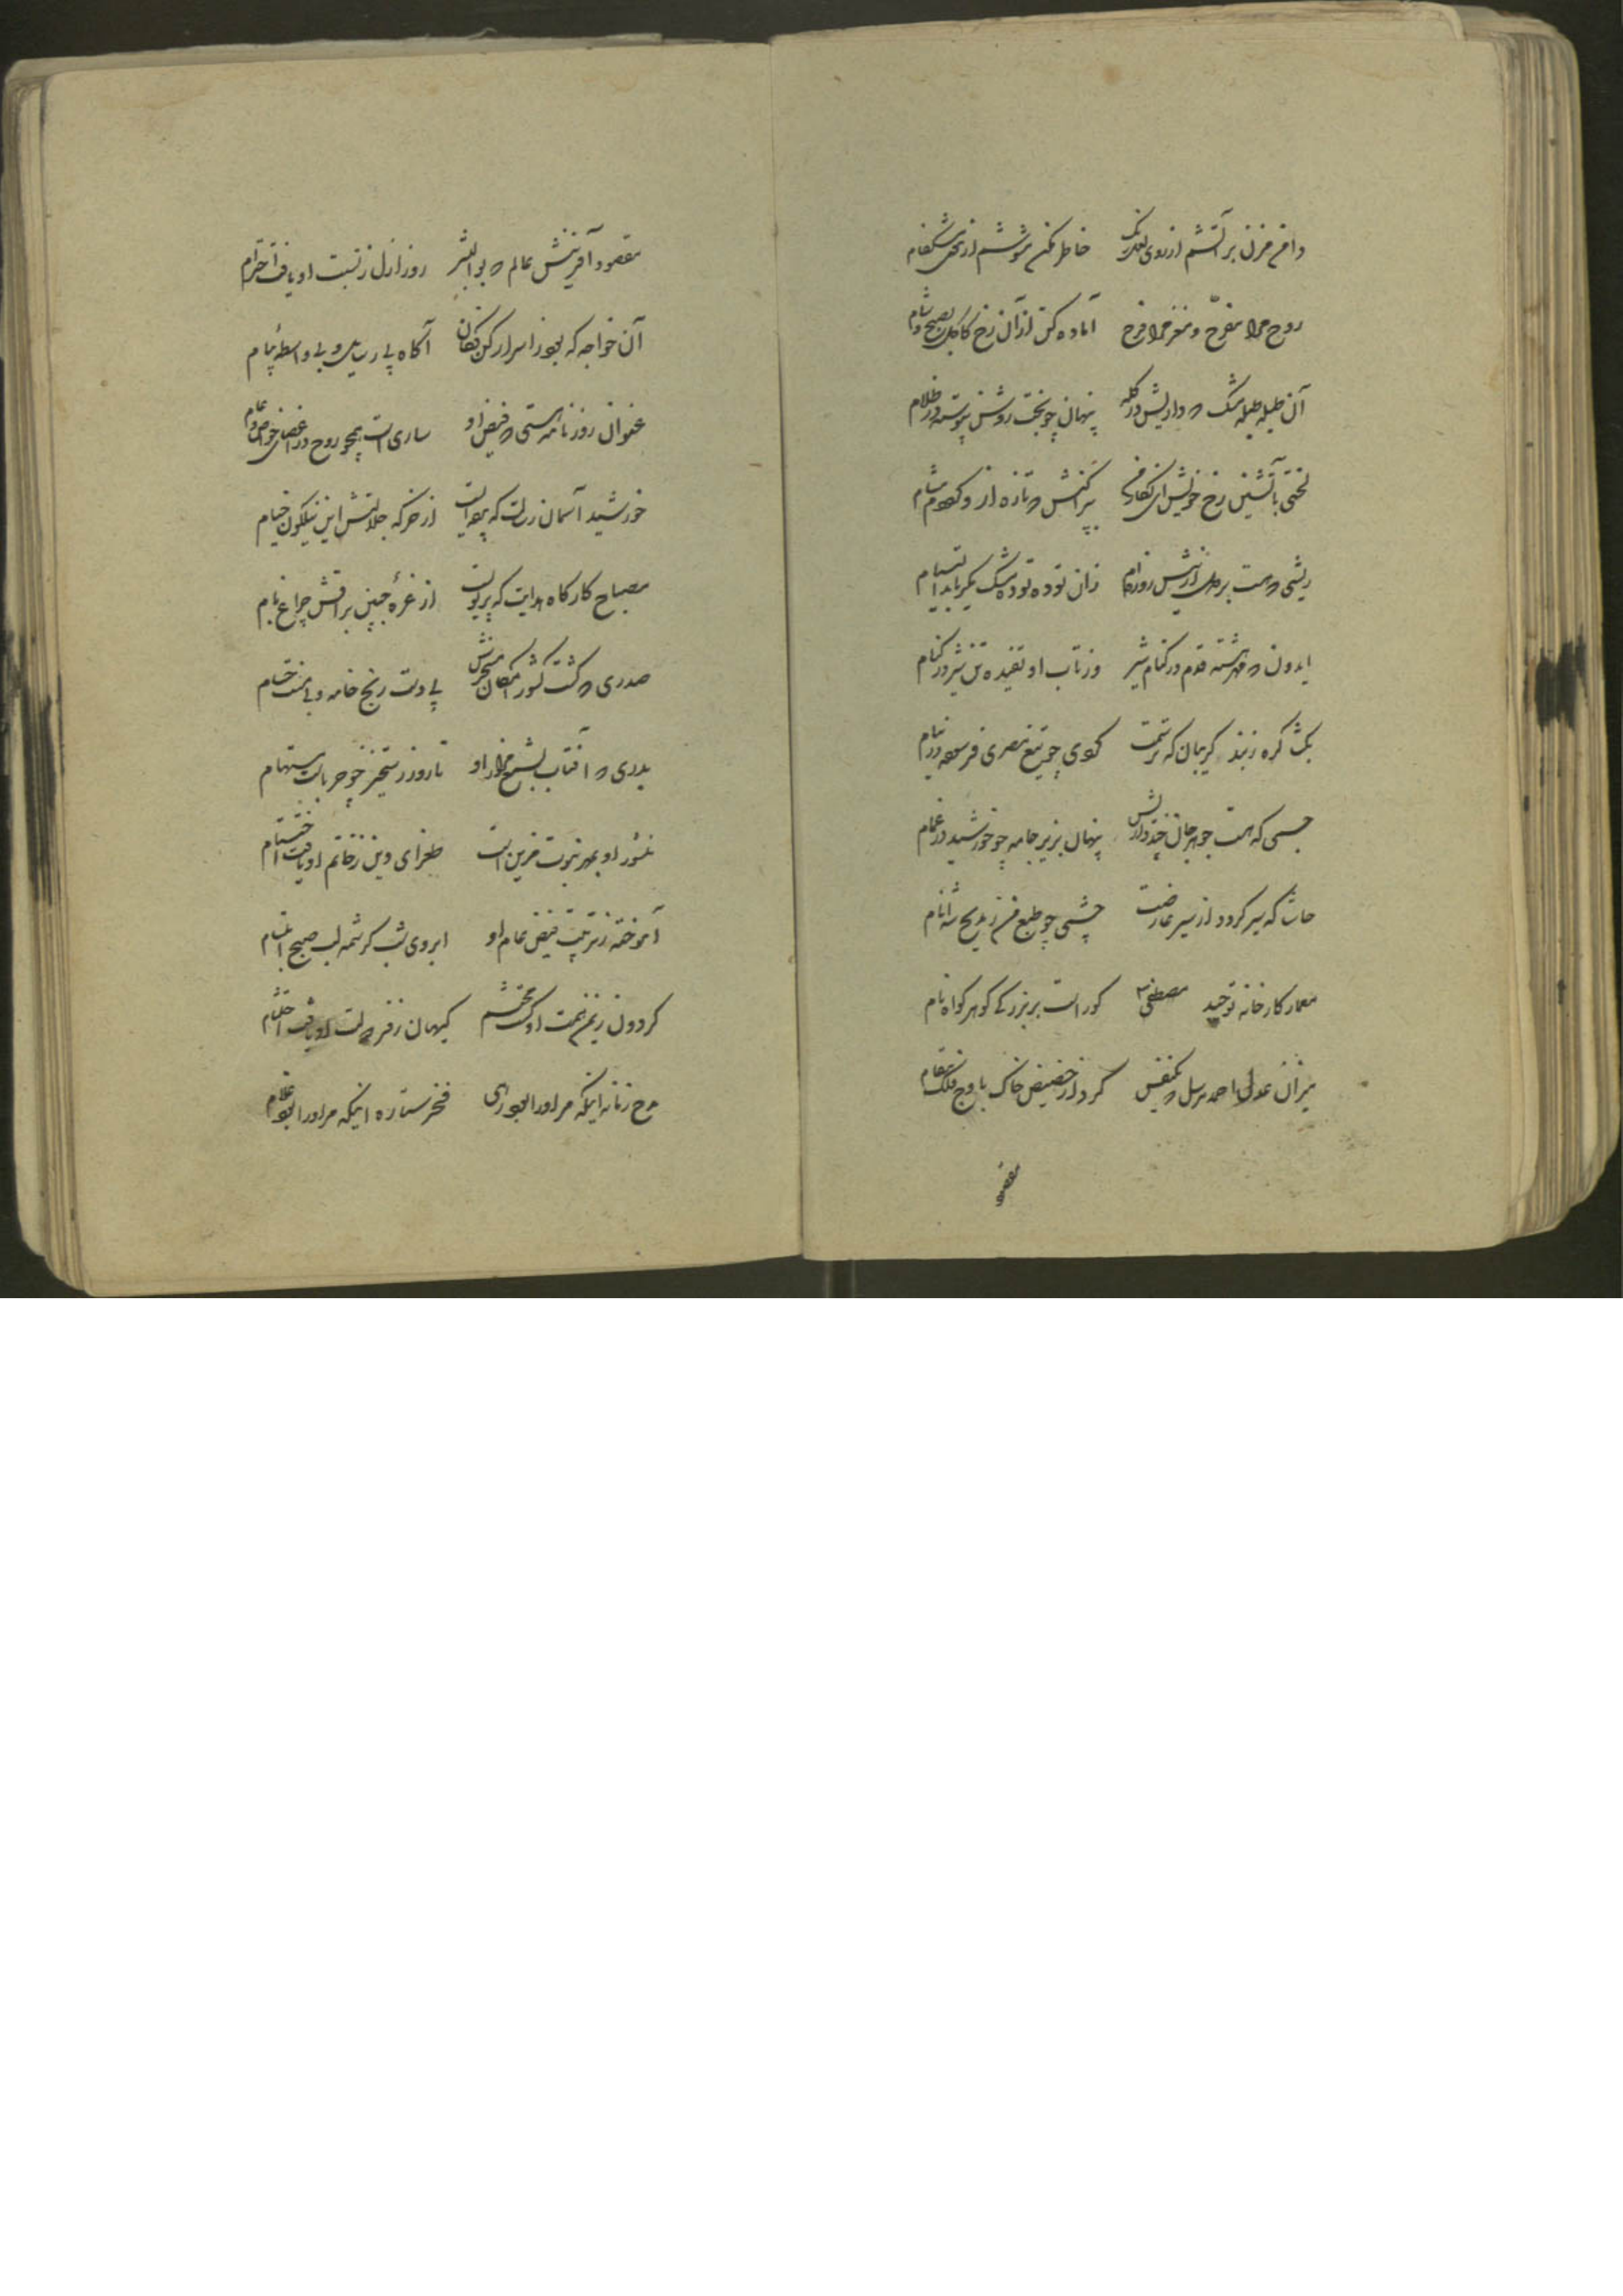 دامن مزن بر آتشم از روی لعل رنگ خاطر مکن مشوشم از موی مشکفام
روح مرا مفرح و مغز مرا فرح آماده کن از آن رخ کاکل بصبح و شام
آن طبله طبله مشک که داریش در کله پنهان چو بخت روشن پیوسته در ظلام
لختی بآتشین رخ خویش ای نگار بپراکنش که تازه از و مشام
ریشی که هست بر دل ریش روزام زان توده توده مشک پذیرد التیام
ایدون که مهر هشته قدم در کنام شیر وز تاب او تفیده تن شیر در کنام
بگشا گره ز بند گریبان که بر تنت گوئی چو تیغ مصری فرسوده در نیام
جسمی که هست جوهر جان پنهان بزیر جامه چو خورشید در غمام
حاشا که سیر گردد از سیر عارضت چشمی چو طبع من ز مدیح شه انام
معمار کارخانه توحید مصطفی کوراست بر بزرگی گوهر گواه نام
میزان عدل احمد مرسل که یکنفس گرد از حضیض خاک باوج فلک مقام
مقصود
مقصود آفرینش عالم که بوالبشر روز ازل ز نسبت او یافت احترام
آن خواجه که بود ز اسرار کن فکان آگاه بی رسایل و بی واسطه پیام
عنوان روزنامه هستی که فیض او ساری است همچو روح در اعضای خاص و عام
خورشید آسمان رسالت که پرده ایست از خرگه جلالتش این نیلگون خیام
مصباح کارگاه هدایت که پرتویست از غره جبین براقش چراغ بام
صدری که گشت کشور امکان مسخرش بی دست رنج خامه و بی منت حسام
بدری که آفتاب بشمع او تا روز رستخیز چو حرباست مستهام
منشور او بمهر نبوت مزین است طغرای دین ز خاتم او یافت اختتام
آموخته ز تربیت فیض عام او ابروی شب کرشمه لب صبح ابتسام
گردون ز یمن همت او گشت محتشم کیهان ز فر دولت او یافت احتشام
مدح زمانه اینکه مر او را بود رهی فخر ستاره اینکه مر او را بود غلام